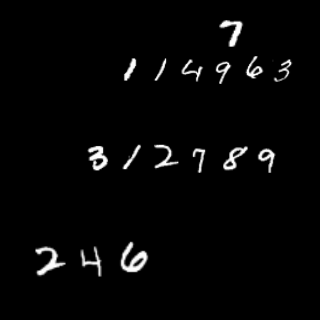 7
114963
312789
246